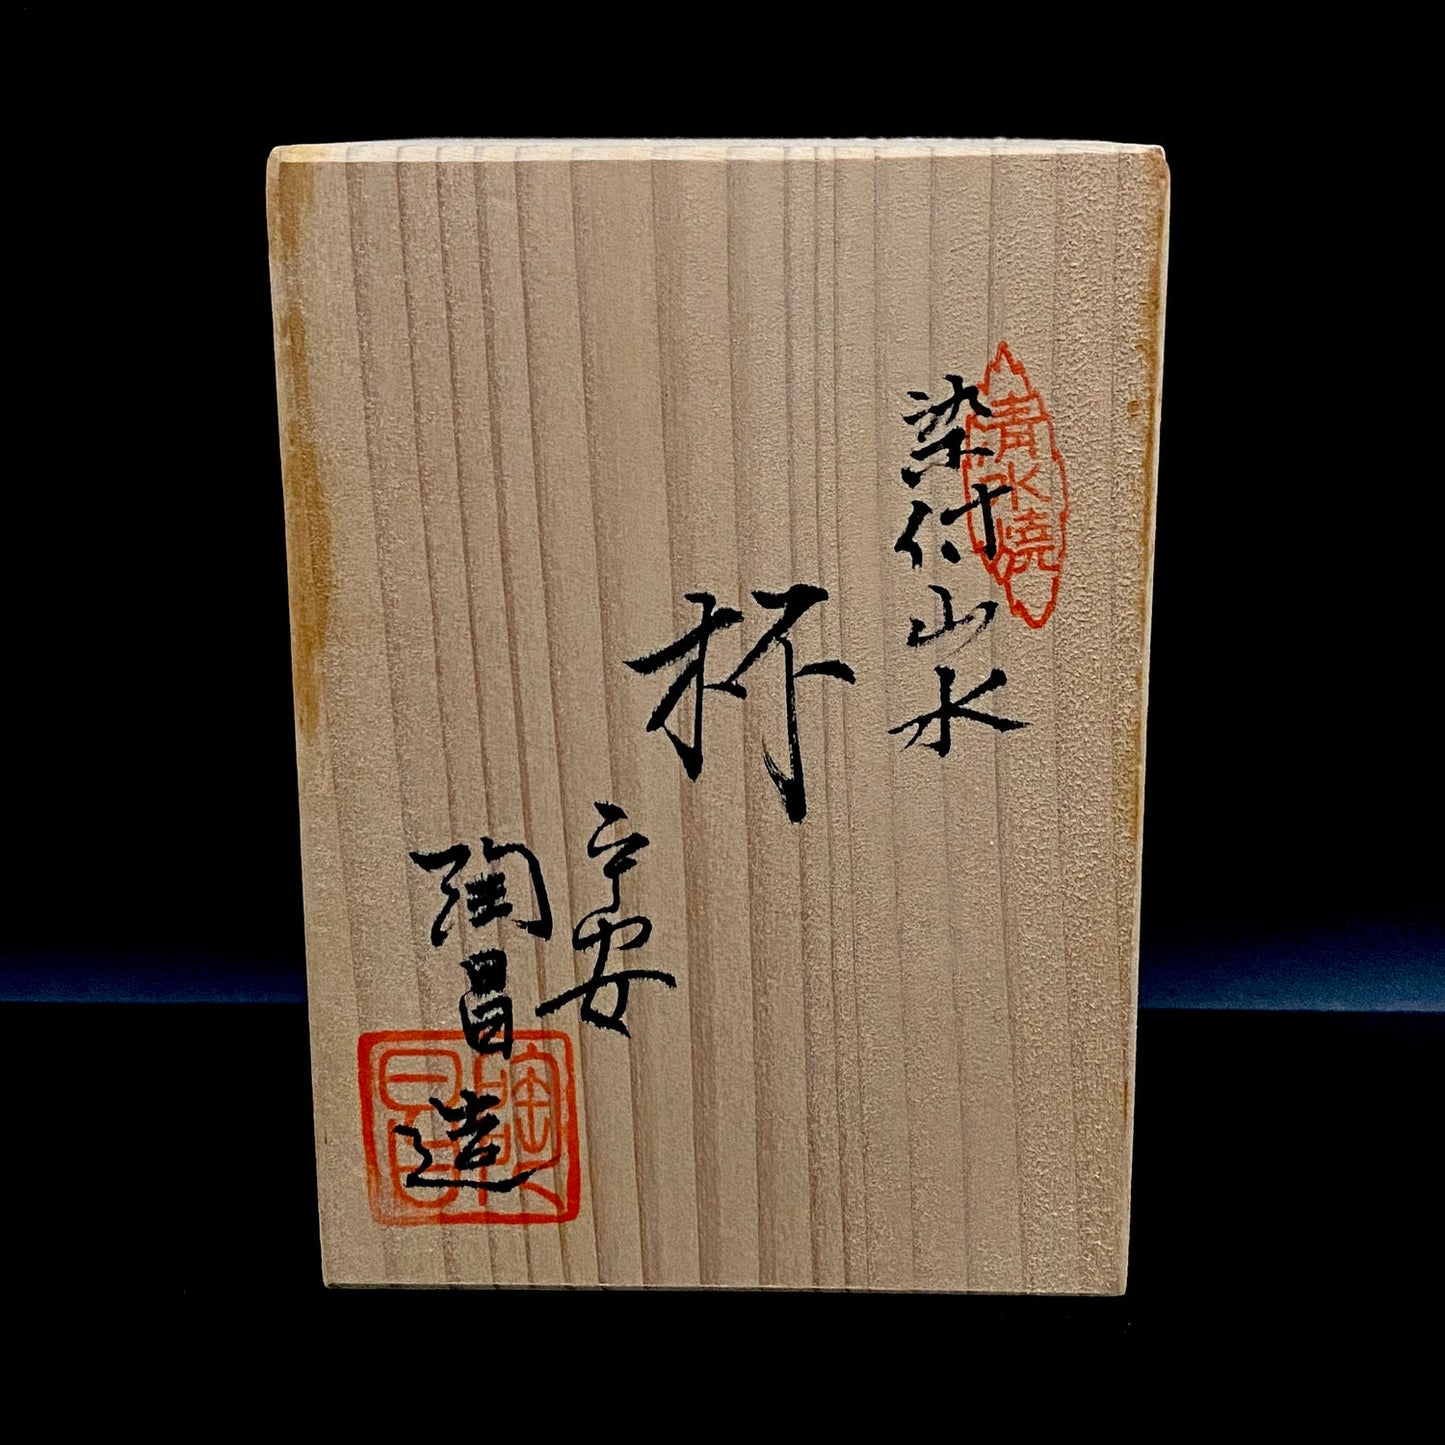 清水焼
染付山水
杯
平安
陶昌造
陶昌